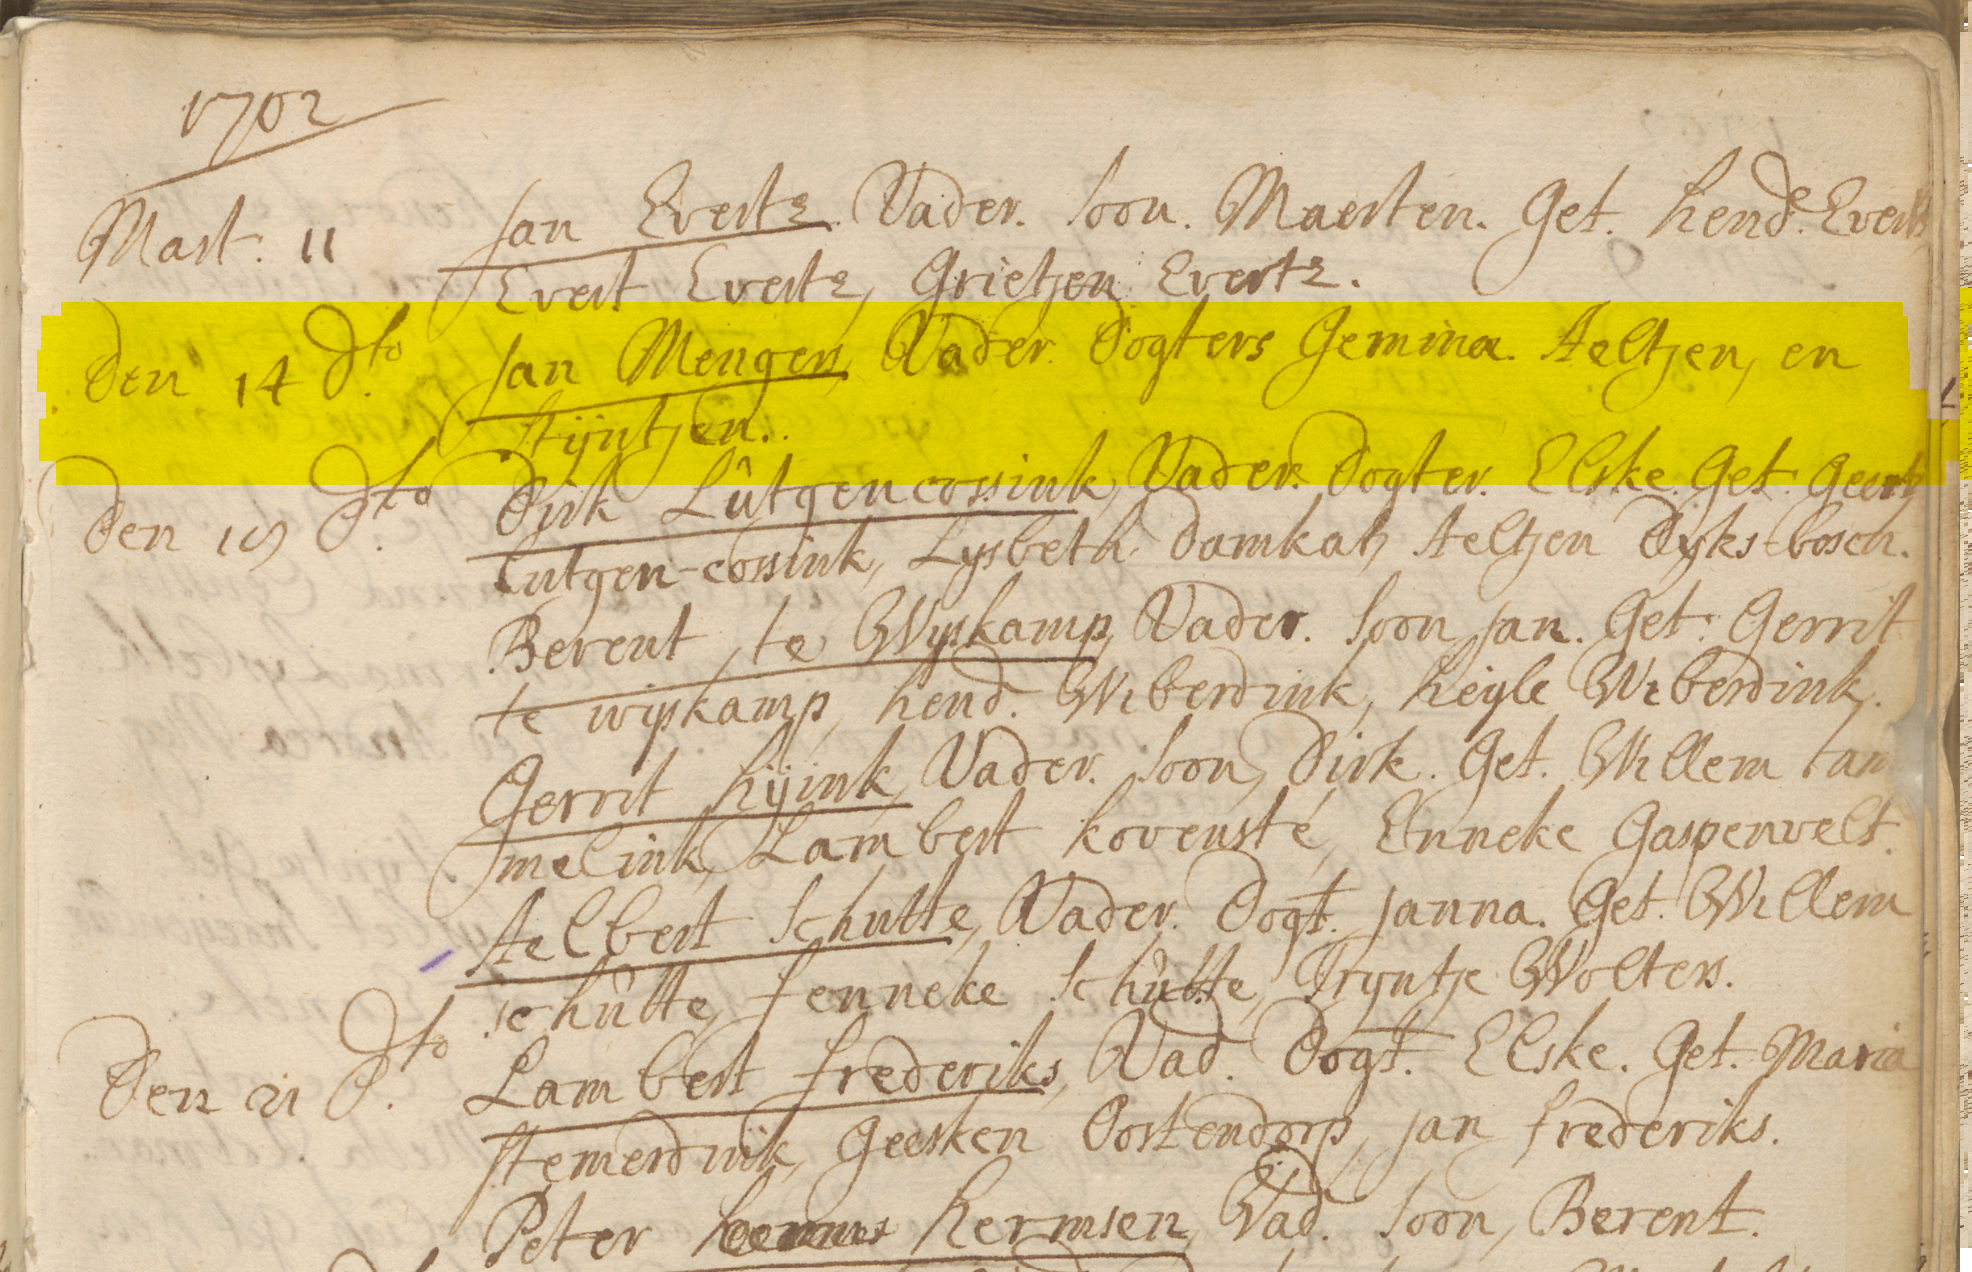 1702
Mart. 11 Jan Everts. Vader. Soon. Maerten. Get. Hend. Everts
Evert Everts, Grietjen Everts.
Den 14 dto Jan Mengen, Vader. Dogters Jemima. Aeltjen, en
Stijntjen.
Den 19 dto Dirk Lûtgencossink, Vader. Dogter. Elske. Get. Geertz
Lutgen-cossink, Lysbeth Damkatz Aeltjen Dyks-bosch.
Berent te Wyskamp, Vader. Soon, Jan. Get. Gerrit
te wyskamp, Hend. Wiberdink, Heyle Wiberdink.
Gerrit Hijink, Vader. Soon, Dirk. Get. Willem tam
melink, Lambert kovensté, Enneke Gaspervelt.
Aelbert Schutte, Vader. Dogt. Janna. Get. Willem
Schûtte, Fenneke Schûtte, Tryntje Wolters.
Den 21 dto Lambert Frederiks, Vad. Dogt. Elske. Get. Maria
Stemerdink, Geesken Oostendorp, Jan Frederiks.
Peter Hermsen, Vad. Soon, Berent.